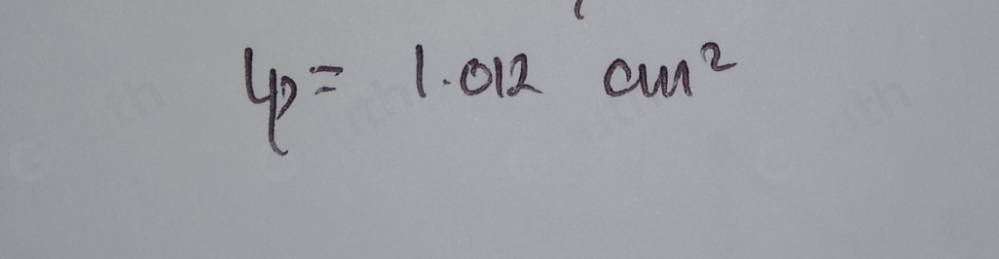 Lp = 1.012 cm²